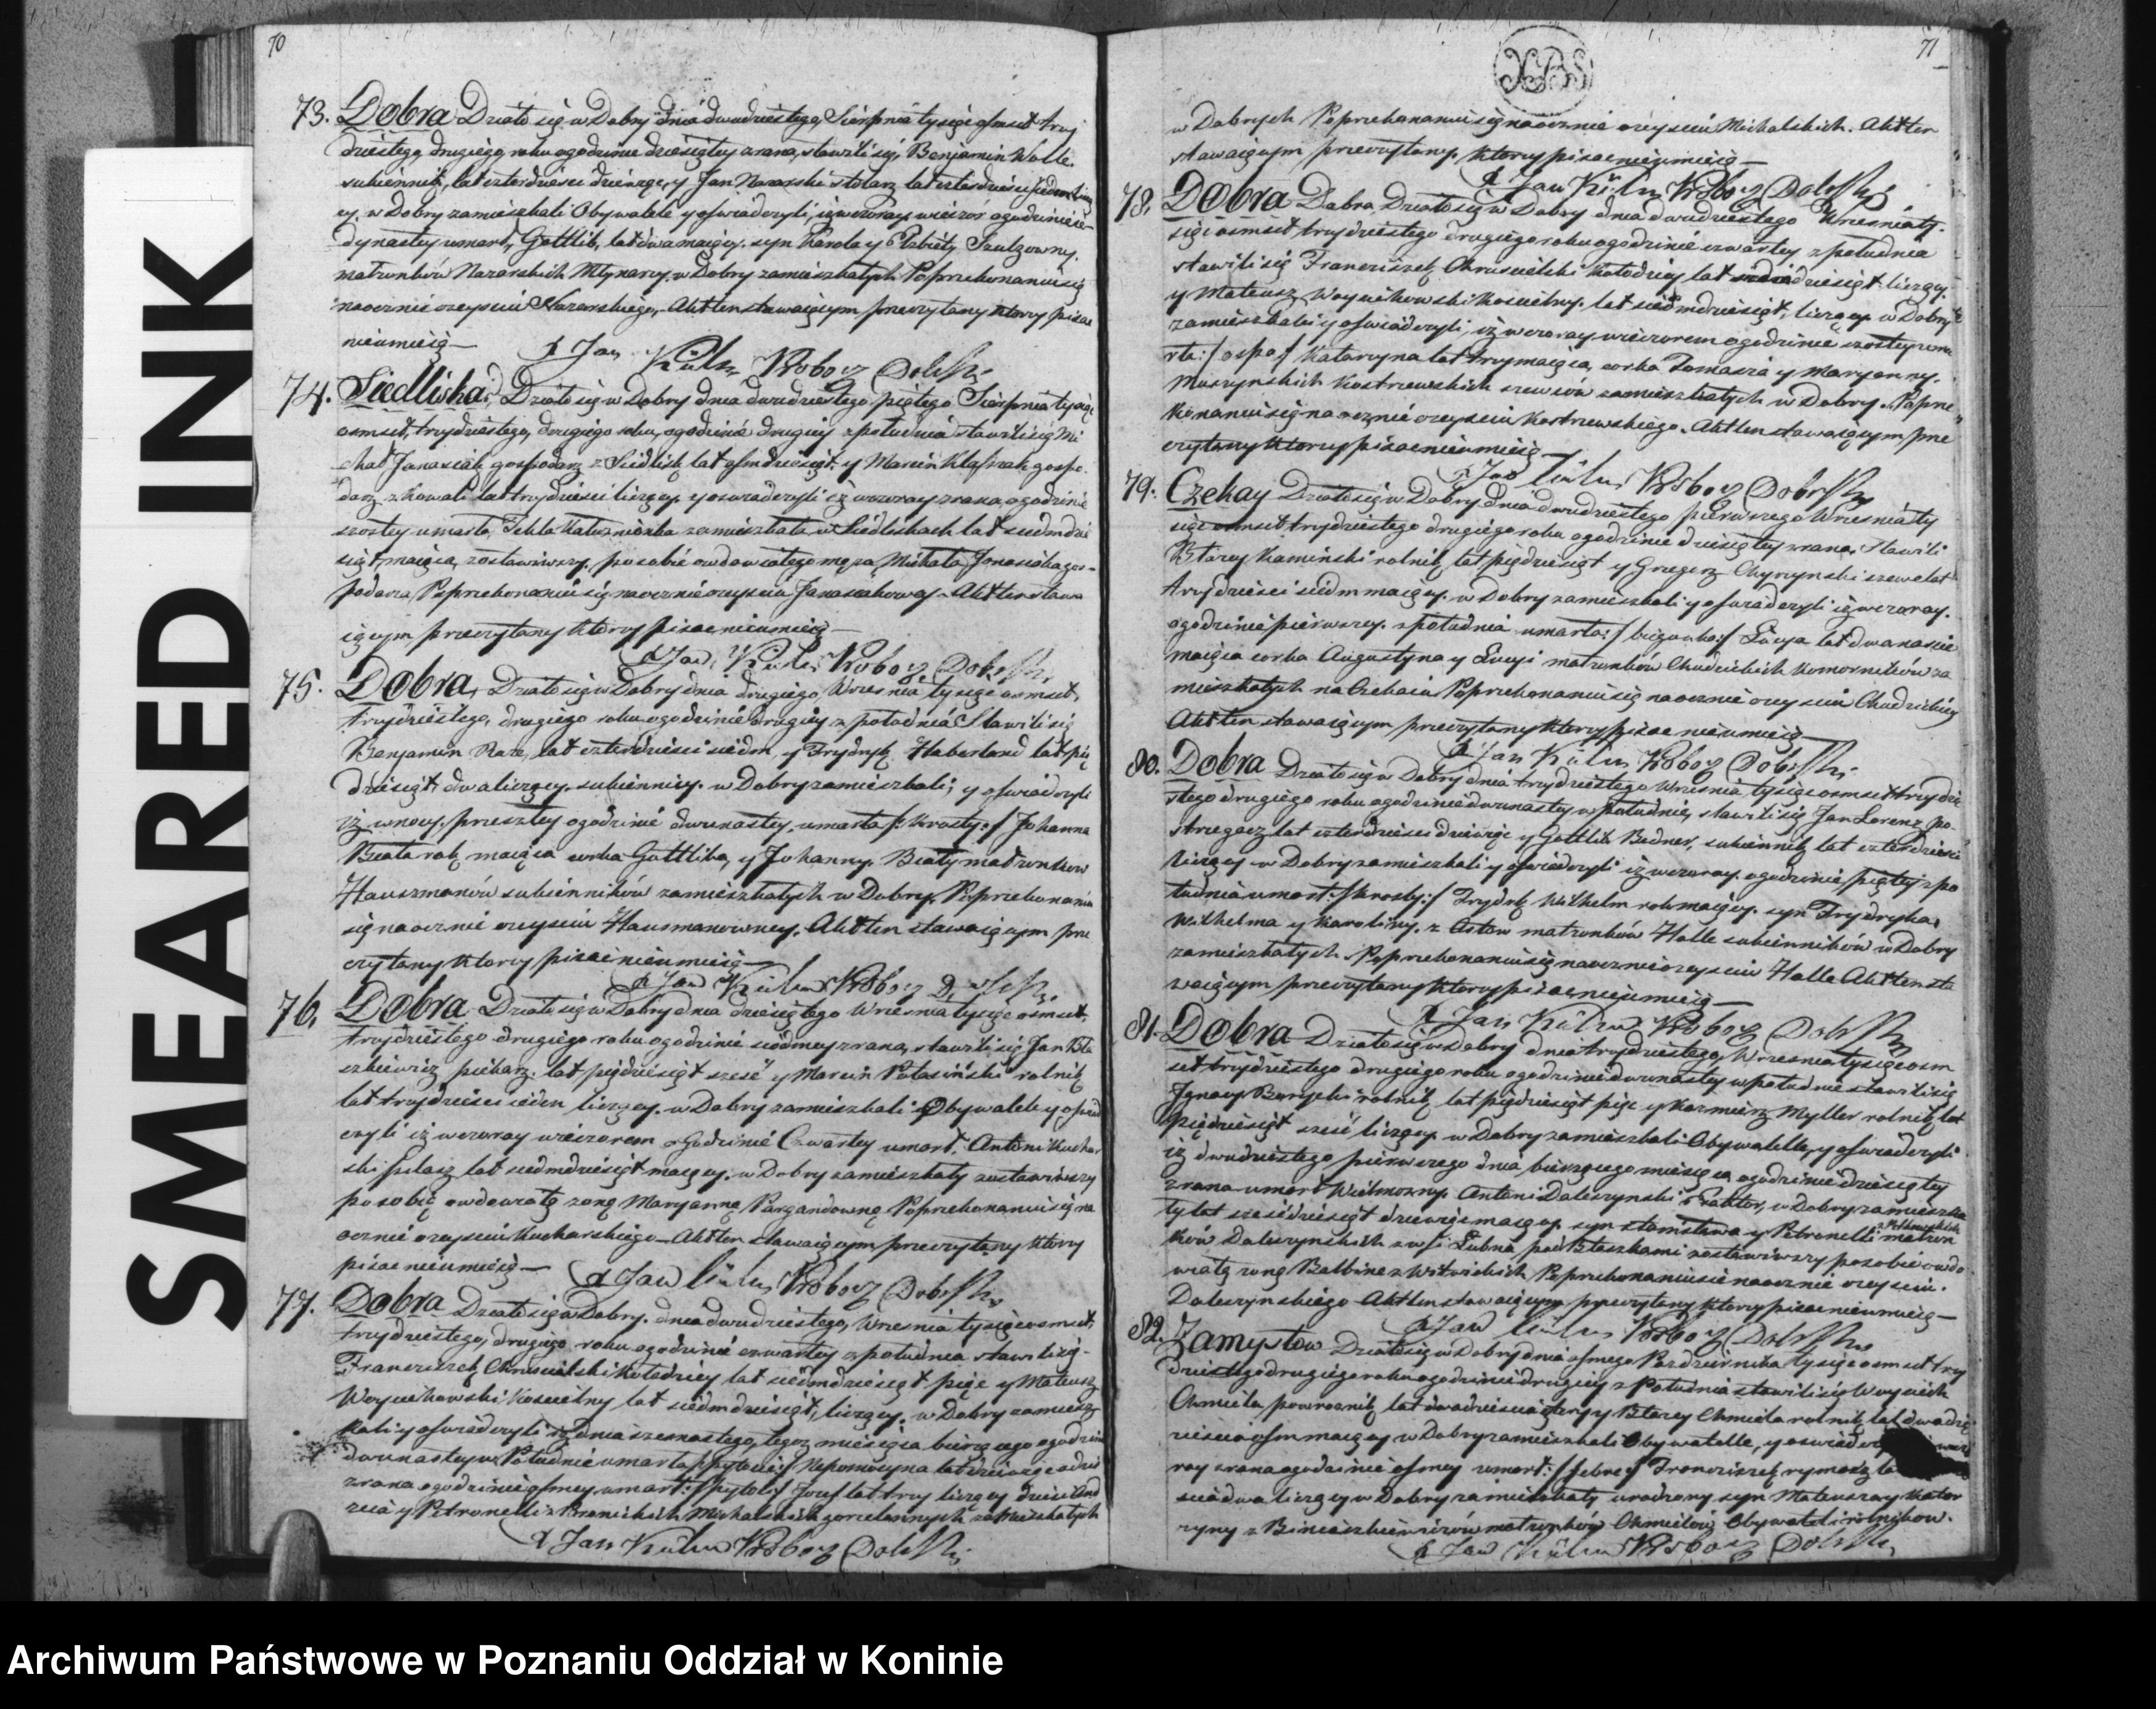 70
73. Dobra Działo się w Dobry dnia dwudziestego Sierpnia tysiąc osmset trzy
dziestego drugiego roku o godzinie dziesiątey z rana, stawili się, Benjamin
sukiennik, lat czterdzieści dziewięć, y Jan Nazarski stolarz lat czterdzieści
cy. w Dobry zamieszkali Obywatele y oswiadczyli, iż wczoray wieczór o godzinie je
dynastey umarł, Gottlib, lat dwa maiący. syn Karola y Elżbiety Szulzowny.
małżonków Nazarskich Młynarzy. w Dobry zamieszkałych Poprzekonaniu się
naocznie o zeysciu Nazarskiego, Akt ten stawaiącym przeczytany ktorzy pisac
nieumieią —
X Jan Kuhn Proboszcz Dobrski
74. Siedliska, Działo się w Dobry dnia dwudziestego piątego Sierpnia tysiąc
osmset, trzydziestego, drugiego roku, o godzinie drugiey z południa stawili się Mi
chał Janasiak gospodarz z Siedlisk lat osmdziesiąt. y Marcin gospo
darz z Kowali lat trzydzieści liczący. y oswiadczyli iż wczoray z rana, o godzinie
szostey umarła, Tekla zamieszkała w Siedliskach lat siedmdzie
siąt, maiąca, zostawiwszy. po sobie owdowiałego męża, Michała Janasiaka gos-
podarza, Poprzekonaniu się naocznie o zeysciu Janasiakowey. Akt ten stawa
iącym przeczytany ktorzy pisac nieumieią —
X Jan Kuhn Proboszcz Dobrski
75. Dobra, Działo się w Dobry dnia drugiego, Wrzesnia tysiąc osmset,
trzydziestego, drugiego roku o godzinie drugiey z południa Stawili się
Benjamin lat czterdzieści siedm y Frydryk Haberland lat pię
dziesiąt, dwa liczący. sukiennicy. w Dobry zamieszkali; y oswiadczyli
iż w nocy. przeszłey o godzinie dwunastey, umarła /: Krosty: / Johanna
Beata rok maiąca corka Gottliba, y Johanny. Beaty małżonkow
Hauszmanów sukienników zamieszkałych w Dobry. Poprzekonaniu
się naocznie o zeysciu Hausmanowney. Akt ten stawaiącym prze
czytany ktorzy pisac nieumieią —
X Jan Kuhn Proboszcz Dobrski
76. Dobra Działo się w Dobry dnia dziesiątego Wrzesnia tysiąc osmset,
trzydziestego drugiego roku o godzinie siódmey z rana, stawili się Jan
piekarz. lat pięćdziesiąt szesć y Marcin rolnik
lat trzydzieści ieden liczący. w Dobry zamieszkali Obywatele y oswiad
czyli iż wczoray wieczorem o Godzinie Czwartey umarł, Antoni Kuchar
ski lat siedmdziesiąt maiący. w Dobry zamieszkały zostawiwszy
po sobie owdowiałą żonę Maryannę Pargandownę Poprzekonaniu się na
ocznie o zeysciu Kucharskiego — Akt ten stawaiącym przeczytany ktorzy
pisac nieumieią — X Jan Kuhn Proboszcz Dobrski
77. Dobra Działo się w Dobry. dnia dwudziestego, Wrzesnia tysiąc osmset,
trzydziestego, drugiego roku o godzinie czwartey z południa stawili się-
Franciszek Chruscielski Kołodziey lat siedmdziesiąt pięć y Mateusz
Woyciechowski Koscielny lat siedmdziesiąt, liczący. w Dobry zamiesz
kali y oswiadczyli iż dnia szesnastego, tegoz miesiąca bieżącego o godzinie
dwunastey w Południe umarła Nepomucyna lat
z rana o godzinie osmey umarł: Jozef lat trzy liczący dzieci
y Petronelli z Michalskich zamieszkałych
X Jan Kuhn Proboszcz Dobrski
71
w Dobrych Poprzekonaniu się naocznie o zeysciu Michalskich. Akt ten
stawaiącym przeczytany. ktorzy pisac nieumieią —
X Jan Kuhn Proboszcz Dobrski
78. Dobra Dobra Działo się w Dobry dnia dwudziestego Wrzesnia ty-
siąc osmset trzydziestego drugiego roku o godzinie czwartey z południa
stawili się Franciszek Chruscielski Kołodziey lat liczący
y Mateusz Woyciechowski Koscielny. lat siedmdziesiąt, liczący. w Dobry
zamieszkali y oswiadczyli, iż wczoray wieczorem o godzinie szostey uma
rła: / ospa / Katarzyna lat trzy maiąca, corka Tomasza y Maryanny.
Kostrzewskich szewców zamieszkałych w Dobry. Poprze
konaniu się naocznie o zeysciu Kostrzewskiego. Akt ten stawaiącym prze
czytany ktorzy pisac nieumieią
X Jan Kuhn Proboszcz Dobrski
79. Czekay Działo się w Dobry dnia dwudziestego pierwszego Wrzesnia ty
siąc osmset trzydziestego drugiego roku o godzinie dziesiątey z rana. Stawili
Błazey Kaminski rolnik, lat pięćdziesiąt y Grzegorz Chyzynski szewc lat
trzydzieści siedm maiący. w Dobry zamieszkali y oswiadczyli iż wczoray.
o godzinie pierwszey. z południa umarła: / biegunka: / Łucya lat dwanascie
maiąca corka Augustyna y Łucyi małżonków Chudzickich komorników za
mieszkałych na Czekaiu Poprzekonaniu się naocznie o zeysciu Chudzickiey
Akt ten stawaiącym przeczytany ktorzy pisac nieumieią —
X Jan Kuhn Proboszcz Dobrski
80. Dobra Działo się w Dobry dnia trzydziestego Wrzesnia tysiąc osmset trzydzie
stego drugiego roku o godzinie dwunastey w południe, stawili się Jan Lorenz po-
strzygacz lat czterdzieści dziewięć y Gottlib Bedner, sukiennik lat czterdzieści
liczący w Dobry zamieszkali y oswiadczyli iż wczoray. o godzinie piątey z po
łudnia umarł: / krosty: / Frydryk Wilhelm rok maiący. syn Frydryka
Wilhelma y Karoliny. z Astow małżonków Halle sukienników w Dobry
zamieszkałych. Poprzekonaniu się naocznie o zeysciu Halle Akt ten sta
waiącym przeczytany ktorzy pisac nieumieią —
X Jan Kuhn Proboszcz Dobrski
81. Dobra Działo się w Dobry dnia trzydziestego, Wrzesnia tysiąc osm
set trzydziestego drugiego roku o godzinie dwunastey w południe stawili się
Ignacy rolnik lat pięćdziesiąt pięć y Kazmierz Myller rolnik lat
pięćdziesiąt szesć liczący. w Dobry zamieszkali Obywatele, y oswiadczyli
iż dwudziestego pierwszego dnia bieżącego miesiąca o godzinie dziesiątey
z rana umarł Wielmozny. Antoni Daleszynski w Dobry zamieszka
ły lat szescdziesiąt dziewięć maiący. syn Stanisława y Petronelli małzon
ków Daleszynskich z wsi Łubna pod Błaszkami zostawiwszy po sobie owdo-
wiałą żonę Balbinę z Poprzekonaniu się naocznie o zeysciu.
Daleszynskiego Akt ten stawaiącym przeczytany ktorzy pisac nieumieią —
X Jan Kuhn Proboszcz Dobrski
82. Zamysłow Działo się w Dobry dnia osmego Pazdziernika tysiąc osmset trzy
dziestego drugiego roku o godzinie drugiey z Południa stawili się Woyciech
Chmiela powroznik, lat dwadziescia cztery y Błazey Chmiela rolnik lat dwadzie
scia osm maiący w Dobry zamieszkali Obywatelle, y oswiadcz
ray z rana o godzinie osmey umarł: / febra / Franciszek rymarz
dwa liczący w Dobry zamieszkały urodzony syn Mateusza y Katar
zyny z małzonków Chmielow Obywateli rolnikow.
X Jan Kuhn Proboszcz Dobrski
SMEARED INK
Archiwum Państwowe w Poznaniu Oddział w Koninie